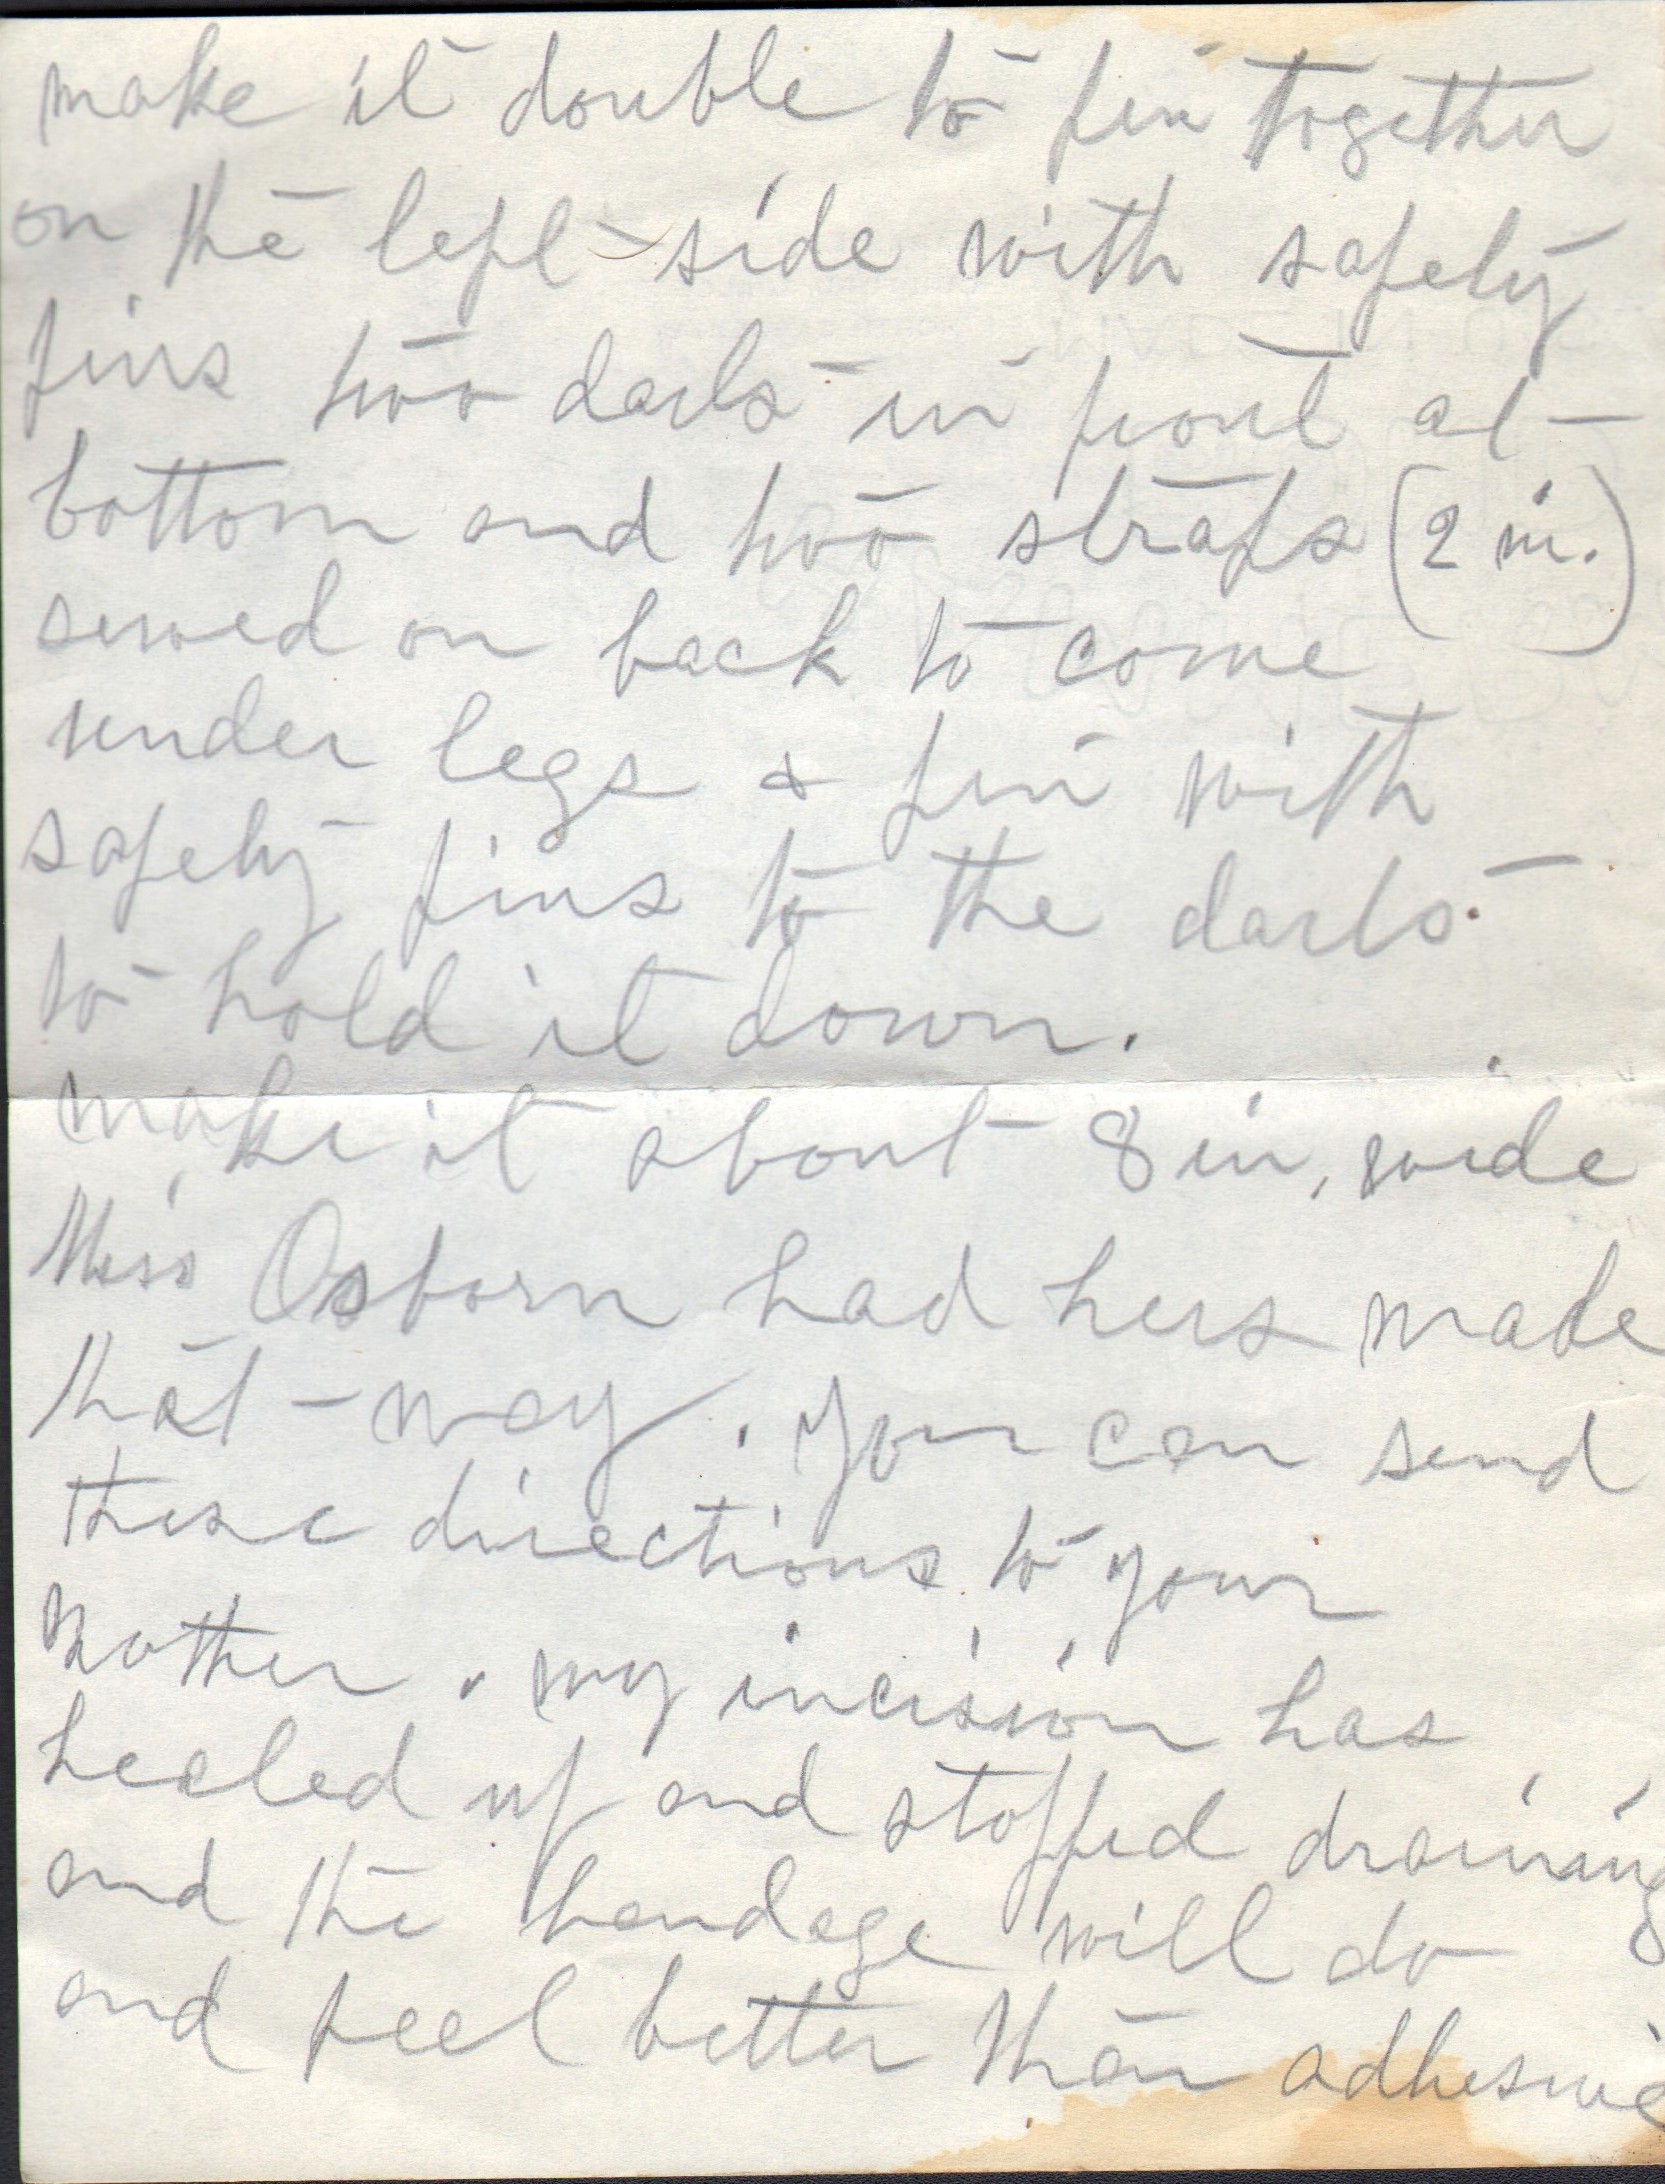 make it double to pin together
on the left side with safety
pins two darts in front at
bottom and two straps (2 in.)
sewed on back to come
under legs & pin with
safety pins to the darts
to hold it down.
make it about 8 in. wide
Miss Osborn had hers made
that way. You can send
these directions to your
Mother. my incision has
healed up and stopped draining
and the bandage will do
and feel better than adhesive